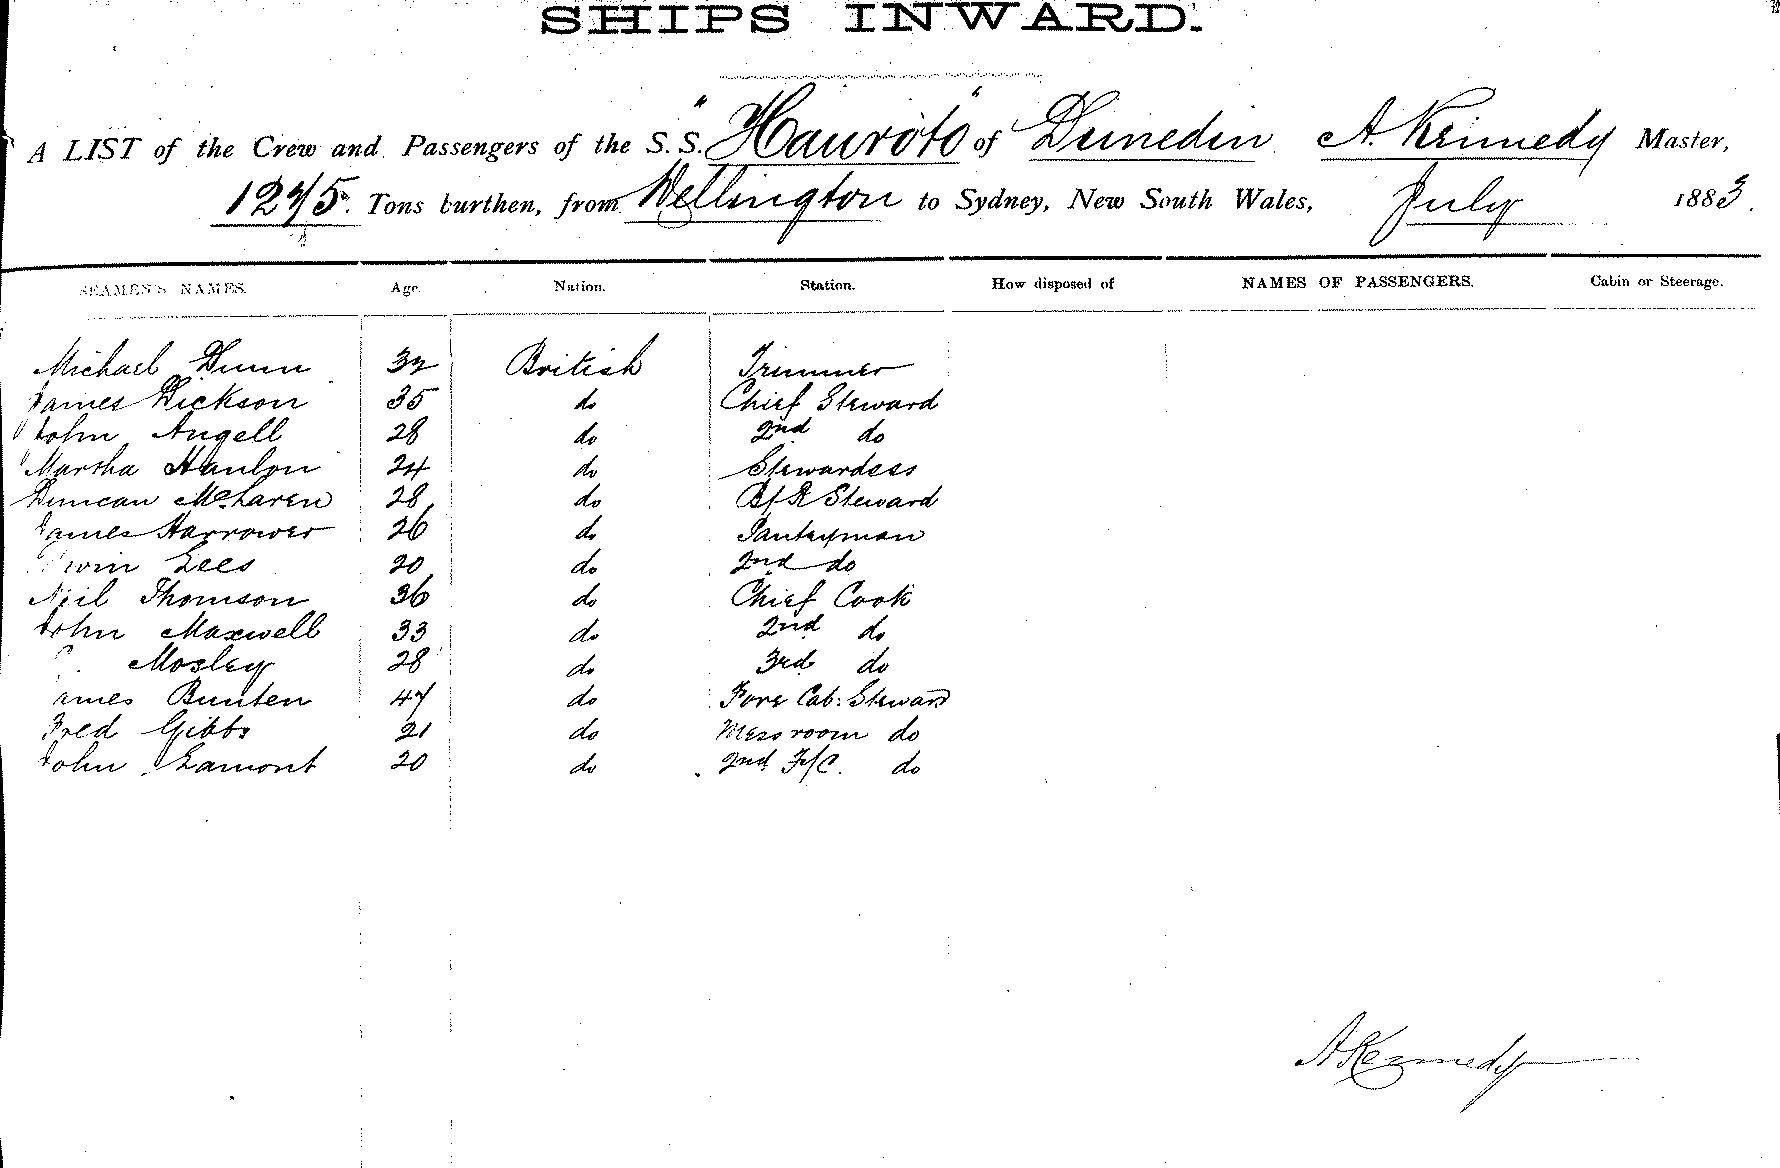 SHIPS INWARD.
A LIST of the Crew and Passengers of the S.S. "Hauroto" of Dunedin A. Kennedy Master,
Tons burthen, from Wellington to Sydney, New South Wales, July 1883.
SEAMEN'S NAMES. Age. Nation. Station. How disposed of NAMES OF PASSENGERS. Cabin or Steerage.
Michael Dunn 32 British Trimmer
James Dickson 35 do Chief Steward
John Angell 28 do 2nd do
Martha Hanlon 24 do Stewardess
Duncan McLaren 28 do Steward
James Harrower 26 do Pantryman
Lees 20 do 2nd do
Neil Thomson 36 do Chief Cook
John Maxwell 33 do 2nd do
Mosley 28 do 3rd do
James Bunten 47 do Fore Cab: Steward
Fred Gibbs 21 do Messroom do
John Lamont 20 do 2nd F/C. do
A Kennedy